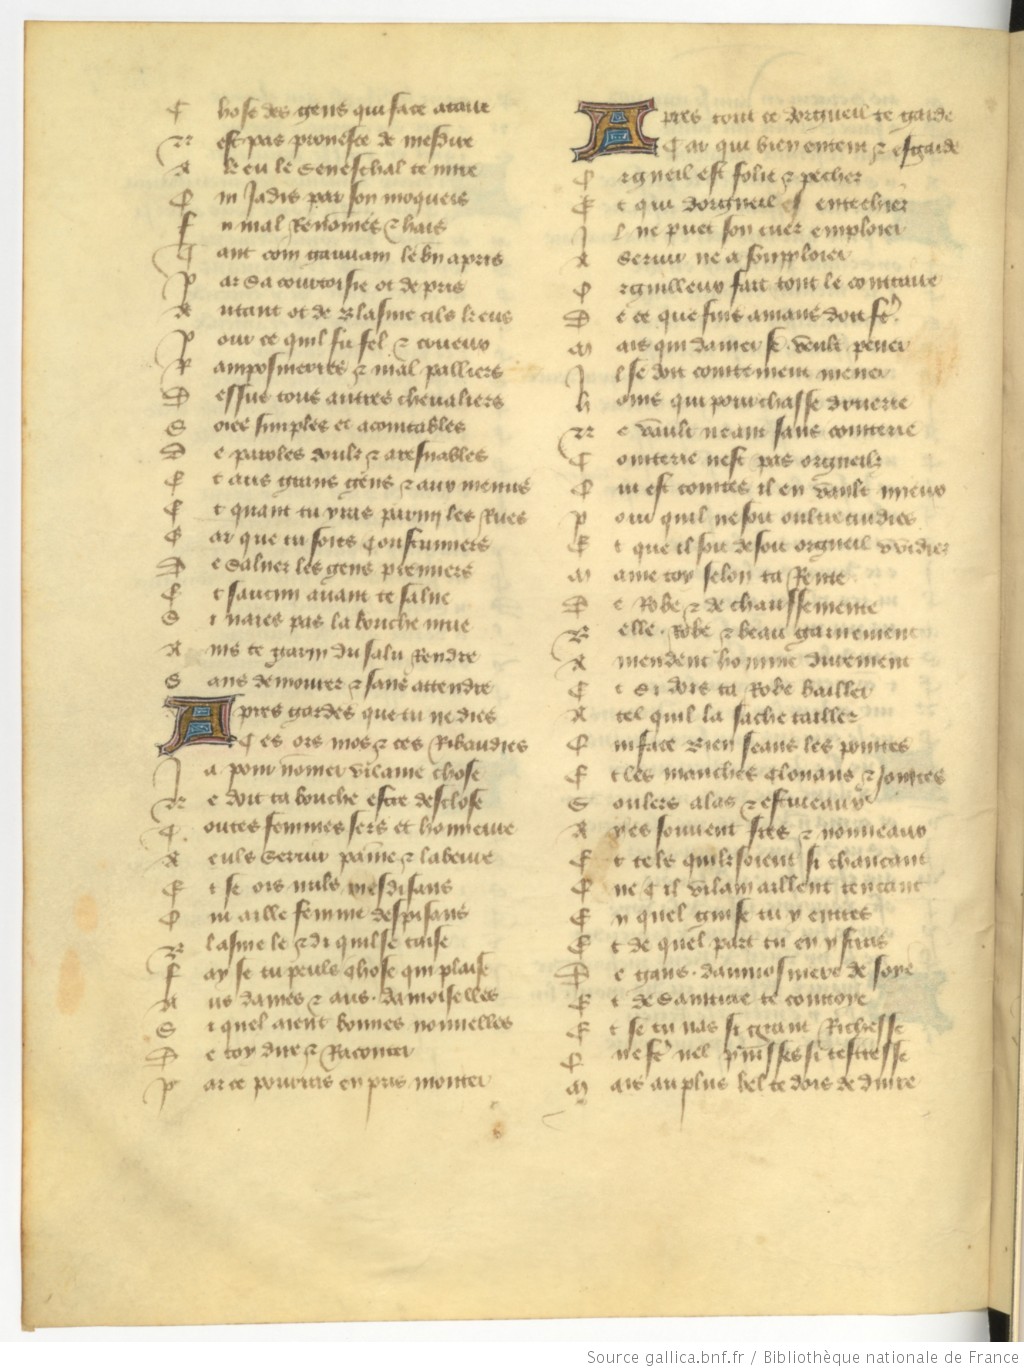 C hose des gens qui face a taire
N est pas prouesce de mesdire
A keu le Seneschal te mire
Q ui Jadis par son moqueis
F u mal Renomes & hais
T ant com gauuain le bn apris
P ar sa courtoisie ot de pris
A utant ot de Blasme cils keus
P our ce quil fu fel & crueus
R amposnierres & mal palliers
D essus tous autres cheualiers
S oies simples et acointables
D e paroles doulz & aresnables
E t aus grans gens & aux menus
E t quant tu yras parmy les Rues
G ar que tu soies Coustumiers
D e Saluer les gens premiers
E t saucun auant te salue
S i naies pas la bouche mue
A ins te garni du salu Rendre
S ans demourer & sans attendre
Apres gardes que tu ne dies
C es ors mos & ces Ribaudies
J a pour nomer vilaine chose
N e doit ta bouche estre desclose
T outes femmes sers et honneure
A eulz Seruir paine & labeure
E t se ors nuls mesdisans
Q ui aille femme despisans
B lasme le & di quil se taise
F ay se tu peuls chose qui plaise
A us dames & aus damoiselles
S i quel aient bonnes nouuelles
D e toy dire & Raconter
P ar ce pourras en pris monter
Apres tout ce dorgueil te garde
C ar qui bien entent & esgarde
O rgueil est folie & pechier
E t qui dorgueil est entechiez
J l ne puet son cuer emploier
A Seruir ne a souploier
O rguilleux fait tout le contraire
D e ce que fins amans doit fere
M ais qui damer se veult pener
J l se doit cointement mener
H oms qui pourchasse druerie
N e vault neant sans cointerie
C ointerie nest pas orgueilz
Q ui est cointes il en vault mieux
P our quil ne soit oultrecuidies
E t que il soit de son orgueil vuidiez
M aine toy selon ta Rente
D e Robe & de chaussemente
B elle Robe & beau garnement
A mendent homme durement
E t Si dois ta Robe bailler
A tel quil la sache tailler
Q ui face Bien seans les pointes
E t les manches Clouans & Jointes
S oulers a las & estiueaux
A yes souuent fres & nouueaux
E t tels quilz soient si chaucant
Q ue Cil vilain aillent tencant
E n quel guise tu y entres
E t de quel part tu en ystras
D e gans daumosniere de soye
E t de Sainture te cointoye
E t se tu nas si grant Richesse
Q ue
M ais au plus bel te dois deduire